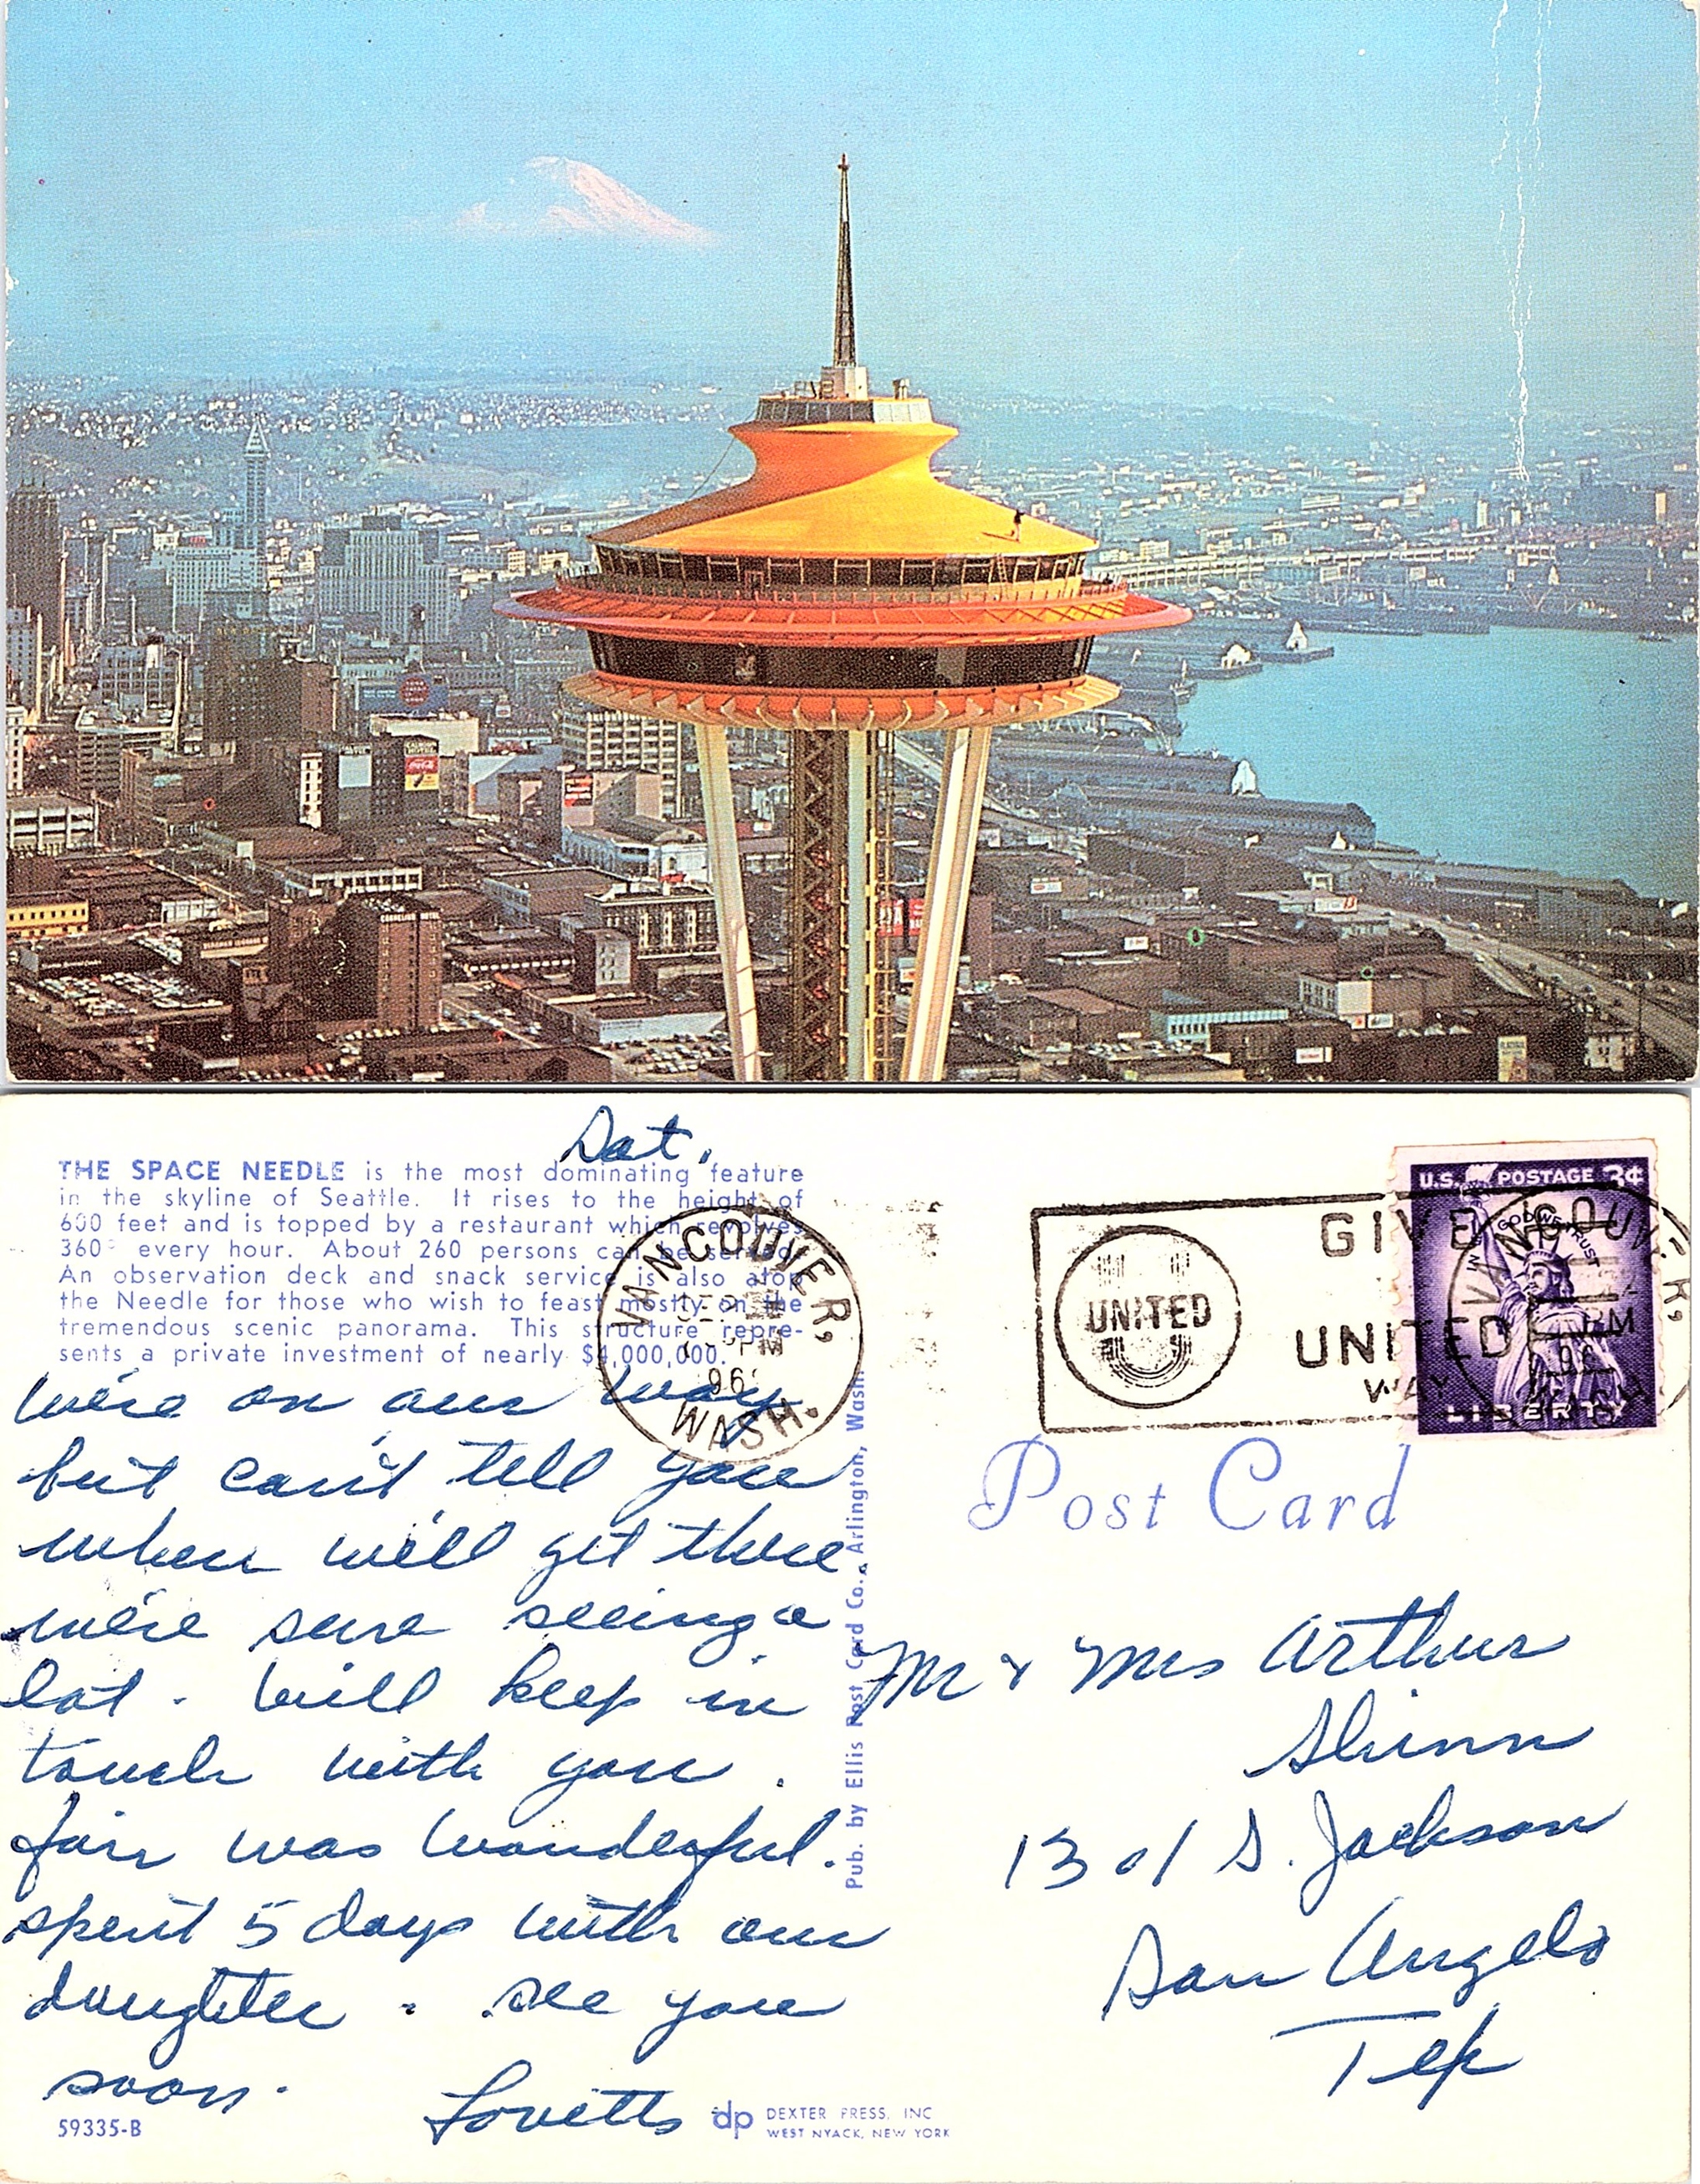 Sat.
THE SPACE NEEDLE is the most dominating feature
in the skyline of Seattle. It rises to the height of
600 feet and is topped by a restaurant which revolves
360° every hour. About 260 persons can be served.
An observation deck and snack service is also atop
the Needle for those who wish to feast mostly on the
tremendous scenic panorama. This structure repre-
sents a private investment of nearly $4,000,000.
VANCOUVER,
PM
WASH.
GIVE
UNITED
UNITED
WAY
U.S. POSTAGE 3¢
IN GOD WE TRUST
LIBERTY
VANCOUVER,
PM
WASH
We're on our way
but can't tell you
when we'll get there
we're sure seeing a
lot. Will keep in
touch with you.
fair was wonderful.
spent 5 days with our
daughter. see you
soon.
Lovetts
59335-B
Pub. by Ellis Post Card Co., Arlington, Wash.
Post Card
Mr & Mrs Arthur
Shinn
1301 S. Jackson
San Angelo
Tex
dp
DEXTER PRESS, INC
WEST NYACK, NEW YORK